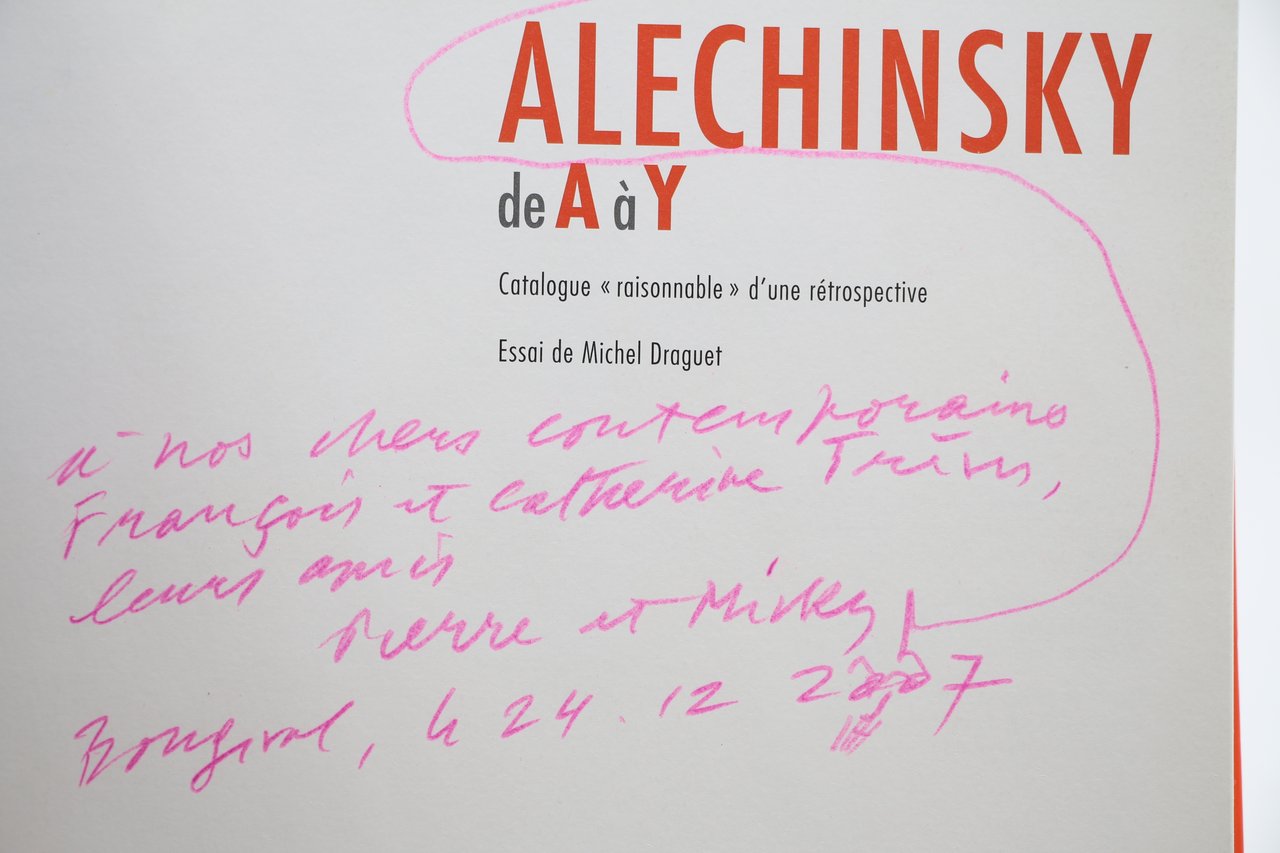 ALECHINSKY
de A à Y
Catalogue « raisonnable » d’une rétrospective
Essai de Michel Draguet
à nos chers contemporains
François et Catherine
leurs amis
Pierre et Micky
Bougival, le 24.12 2007